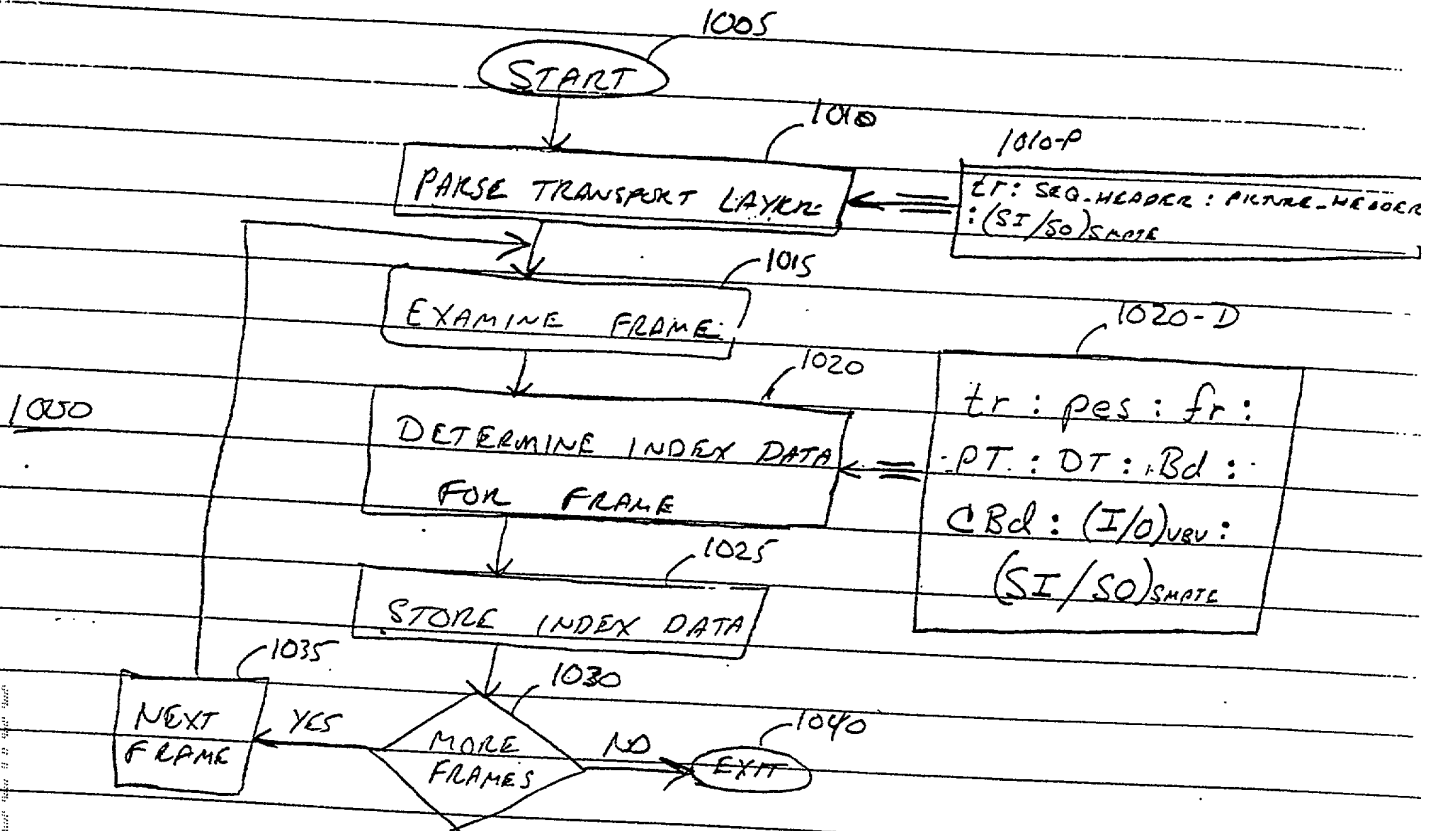 1005
START
1010
PARSE TRANSPORT LAYER
1010-P
tr: SEQ_HEADER : PICTURE_HEADER
: (SI/SO)SMPTE
1015
EXAMINE FRAME
1020
DETERMINE INDEX DATA
FOR FRAME
1020-D
tr : pes : fr :
PT : DT : Bd :
CBd : (I/O)VBV :
(SI/SO)SMPTE
1000
1025
STORE INDEX DATA
1030
MORE
FRAMES
YES
NO
1035
NEXT
FRAME
1040
EXIT